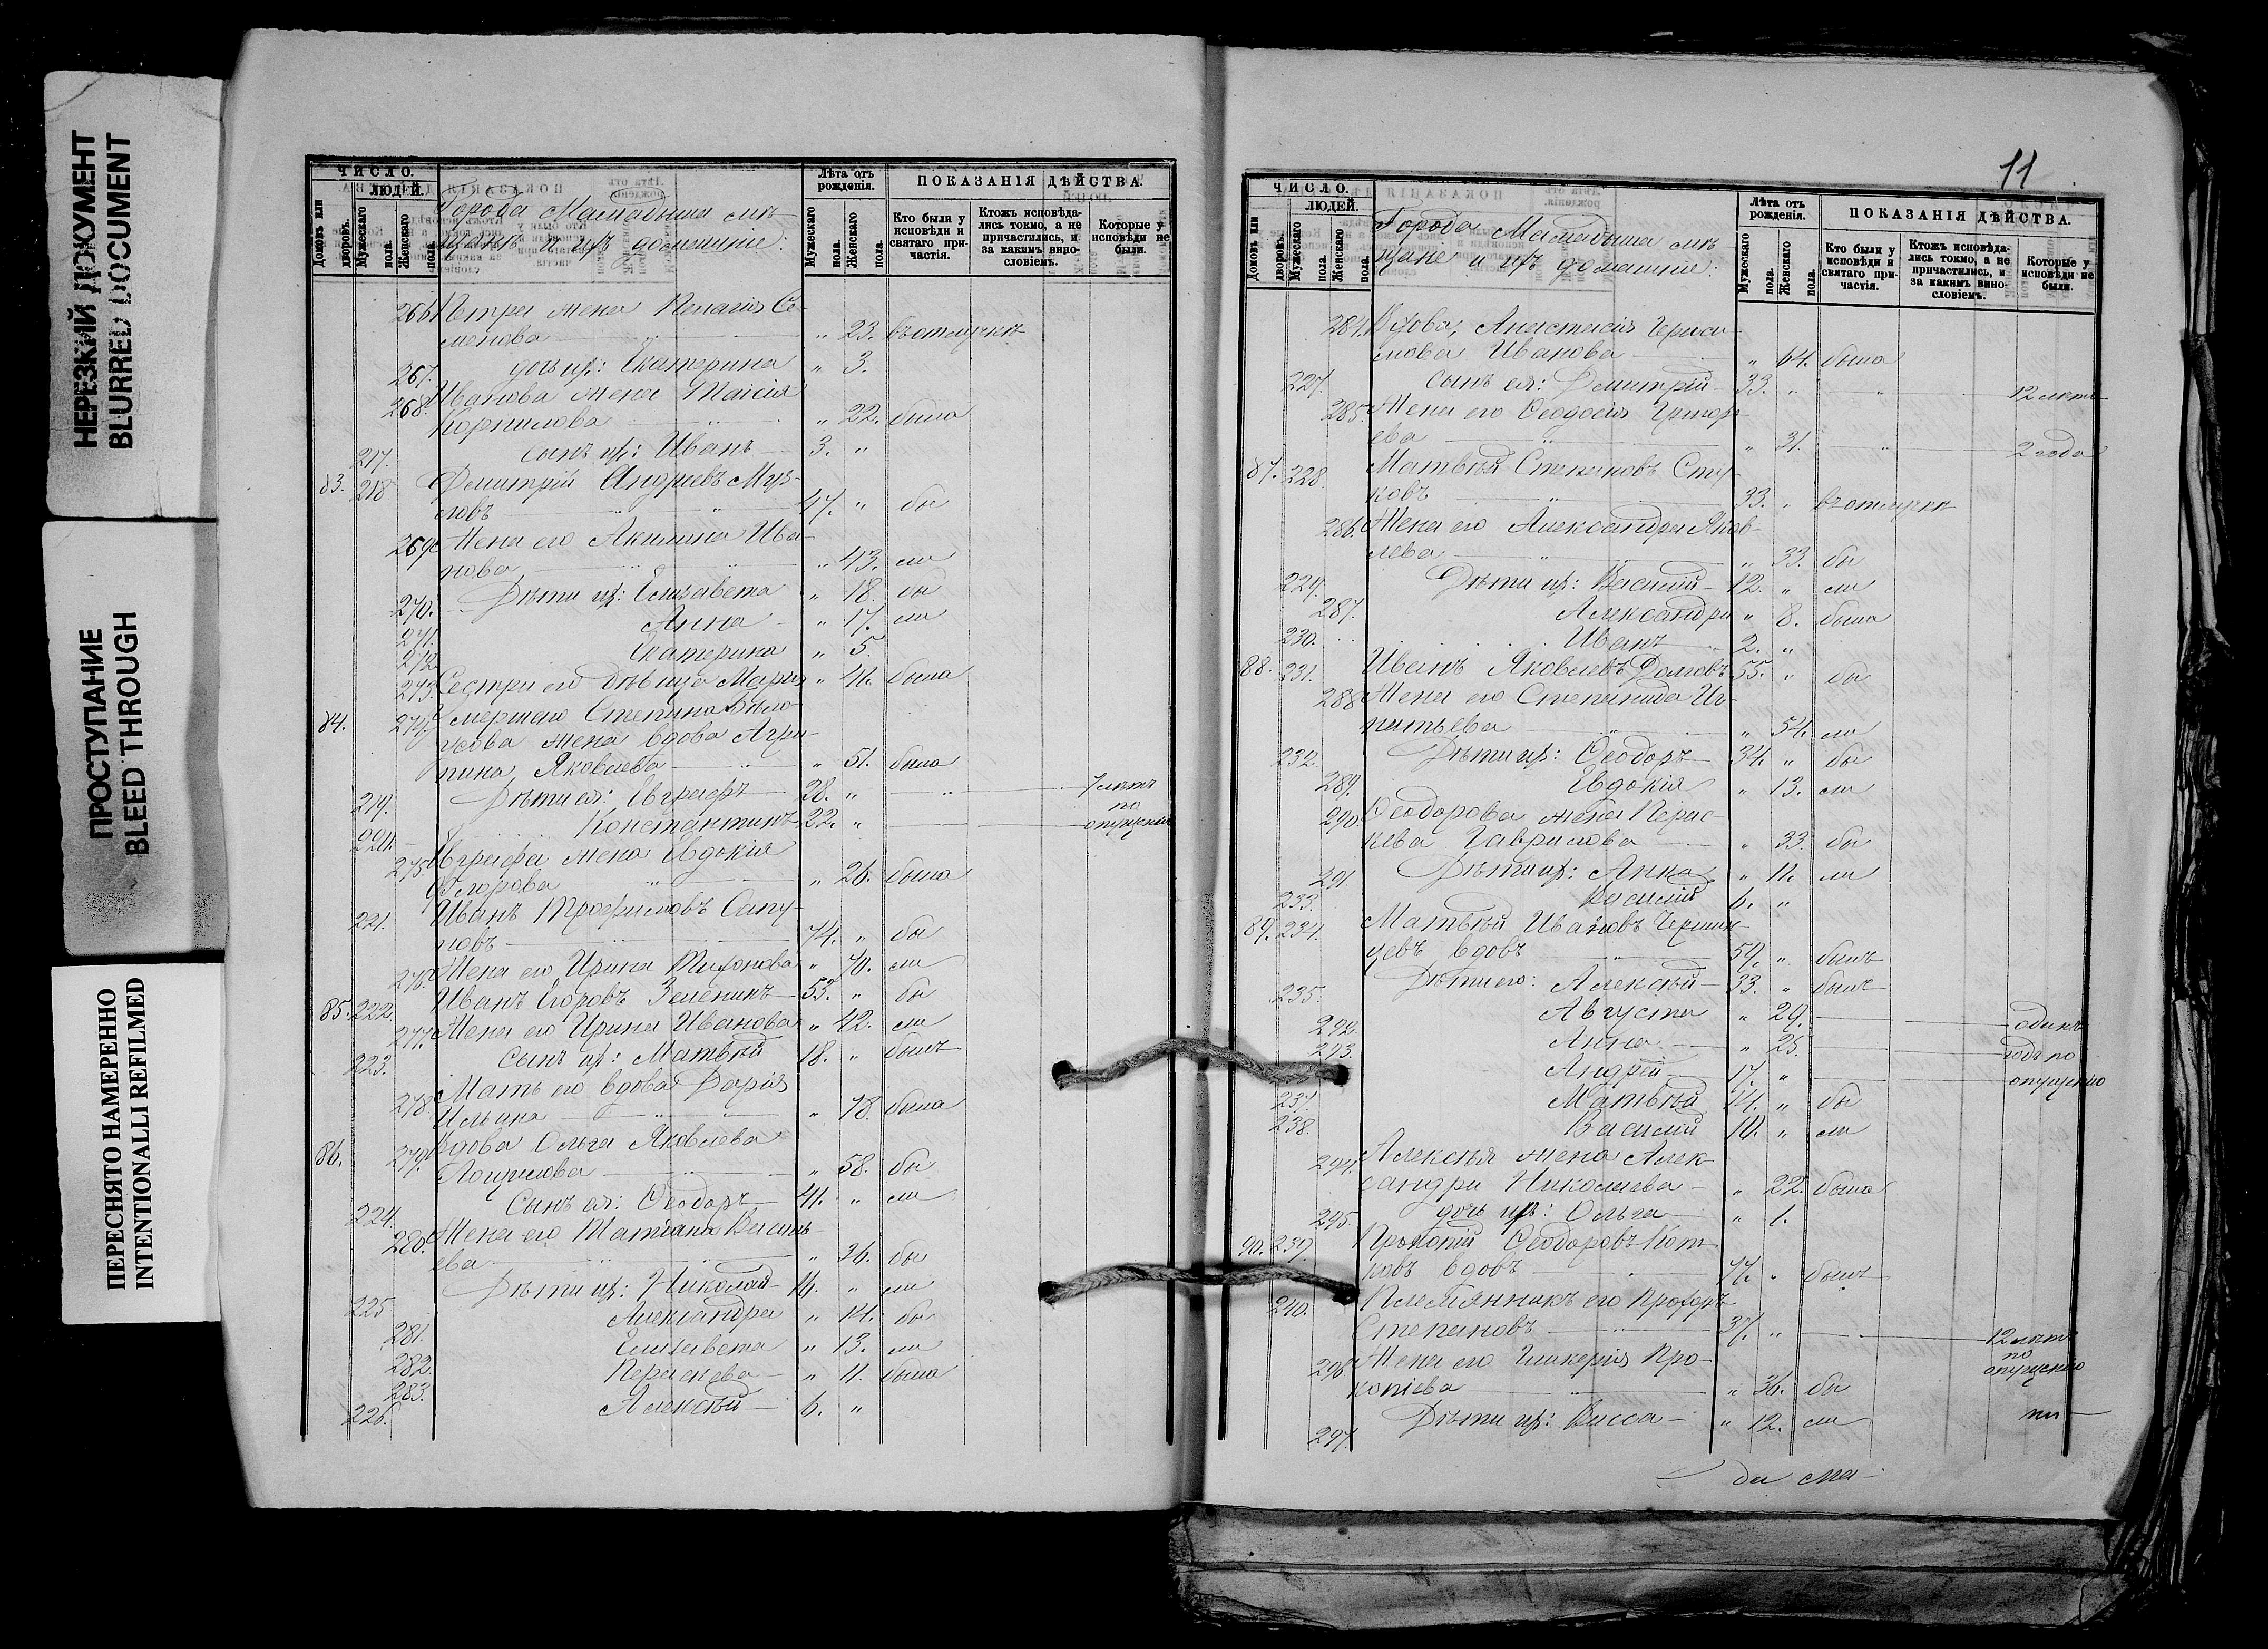 НЕРЕЗКИЙ ДОКУМЕНТ
BLURRED DOCUMENT
ПРОСТУПАНИЕ
BLEED THROUGH
ПЕРЕСНЯТО НАМЕРЕННО
INTENTIONALLI REFILMED
ЧИСЛО.
ЛЮДЕЙ.
Домовъ или дворовъ.
Мужескаго пола.
Женскаго пола.
Города Мамадыша мѣ-
щане и ихъ домашніе:
Лѣта отъ рожденія.
Мужескаго пола.
Женскаго пола.
ПОКАЗАНІЯ ДѢЙСТВА.
Кто были у исповѣди и святаго причастія.
Ктожъ исповѣдались токмо, а не причастились, и за какимъ винословіемъ.
Которые у исповѣди не были.
266 Петра жена Пелагія Се-
менова " 23. въ отлучкѣ
267. дочь их: Екатерина " 3.
268. Иванова жена Таисія
Корнилова " 22. была
217. сынъ их: Иванъ 3. "
83. 218 Димитрій Андреевъ Муз-
ловъ 47. " бы
269 Жена его Акилина Ива-
нова " 43. ли
270. Дѣти их: Елизавета " 18. бы
271. Анна " 17. ли
272. Екатерина " 5.
273. Сестра его дѣвица Марія " 41. была
84. 274. Умершаго Степана Бѣло-
усова жена вдова Агри-
пина Яковлева " 51. была
219. Дѣти ея: Евграфъ 28. " 7 лѣтъ
по
220. Константинъ 22. " опущенію
275. Евграфа жена Евдокія
Ѳедорова " 26. была
221. Иванъ Трофимовъ Сапу-
новъ 74. " бы
276. Жена его Ирина Тихонова " 70. ли
85. 222. Иванъ Егоровъ Зеленинъ 53. " бы
277. Жена его Ирина Иванова " 42. ли
223. Сынъ их: Матвѣй 18. " былъ
278. Мать его вдова Дарія
Ильина " 78. была
86. 279. Вдова Ольга Яковлева
Лощилова " 58. бы
224. Сынъ ея: Ѳеодоръ 41. " ли
280. Жена его Татіана Василь-
ева " 36. бы
225 Дѣти их: Николай 16. " ли
281. Александра " 14. бы
282. Елизавета " 13. ли
283. Параскева " 11. была
226. Алексѣй 6. "
11
ЧИСЛО.
ЛЮДЕЙ.
Домовъ или дворовъ.
Мужескаго пола.
Женскаго пола.
Города Мамадыша мѣ-
щане и ихъ домашніе:
Лѣта отъ рожденія.
Мужескаго пола.
Женскаго пола.
ПОКАЗАНІЯ ДѢЙСТВА.
Кто были у исповѣди и святаго причастія.
Ктожъ исповѣдались токмо, а не причастились, и за какимъ винословіемъ.
Которые у исповѣди не были.
284. Вдова, Анастасія Гераси-
мова Иванова " 64. была
227. Сынъ ея: Димитрій 33. " " 12 лѣтъ
285. Жена его Ѳеодосія Григорь-
ева " 31. " 2 года
87. 228. Матвѣй Степановъ
33. " въ отлучкѣ
286. Жена его Александра Яков-
лева " 33. бы
229. Дѣти их: Василій 12. " ли
287. Александра " 8. была
230. Иванъ 2. "
88. 231. Иванъ Яковлевъ Долговъ 55. " бы
288 Жена его Степанида Иг-
натьева " 54. ли
232. Дѣти их: Ѳеодоръ 34. " бы
289. Евдокія " 13. ли
290. Ѳеодорова жена Парас-
кева Гаврилова " 33. бы
291. Дѣти их: Анна " 11. ли
233. Василій 6. "
89. 234. Матвѣй Ивановъ
вдовъ 59. " былъ
235. Дѣти его: Алексѣй 33. " былъ
292. Августа " 29. одинъ
293. Анна " 25. годъ по
Андрей 17. " опущенію
237. Матвѣй 14. " бы
238. Василій 10. " ли
294. Алексѣя жена Алек-
сандра Николаева " 22. была
295. дочь их: Ольга " 1.
90. 239. Прокопій Ѳеодоровъ Кот-
ковъ вдовъ 77. " былъ
240. Племянникъ его Прохоръ
Степановъ 37. " 12 лѣтъ
по
опущенію
296 Жена его Гликерія Про-
копіева " 36. бы
297. Дѣти их: Васса " 12. ли